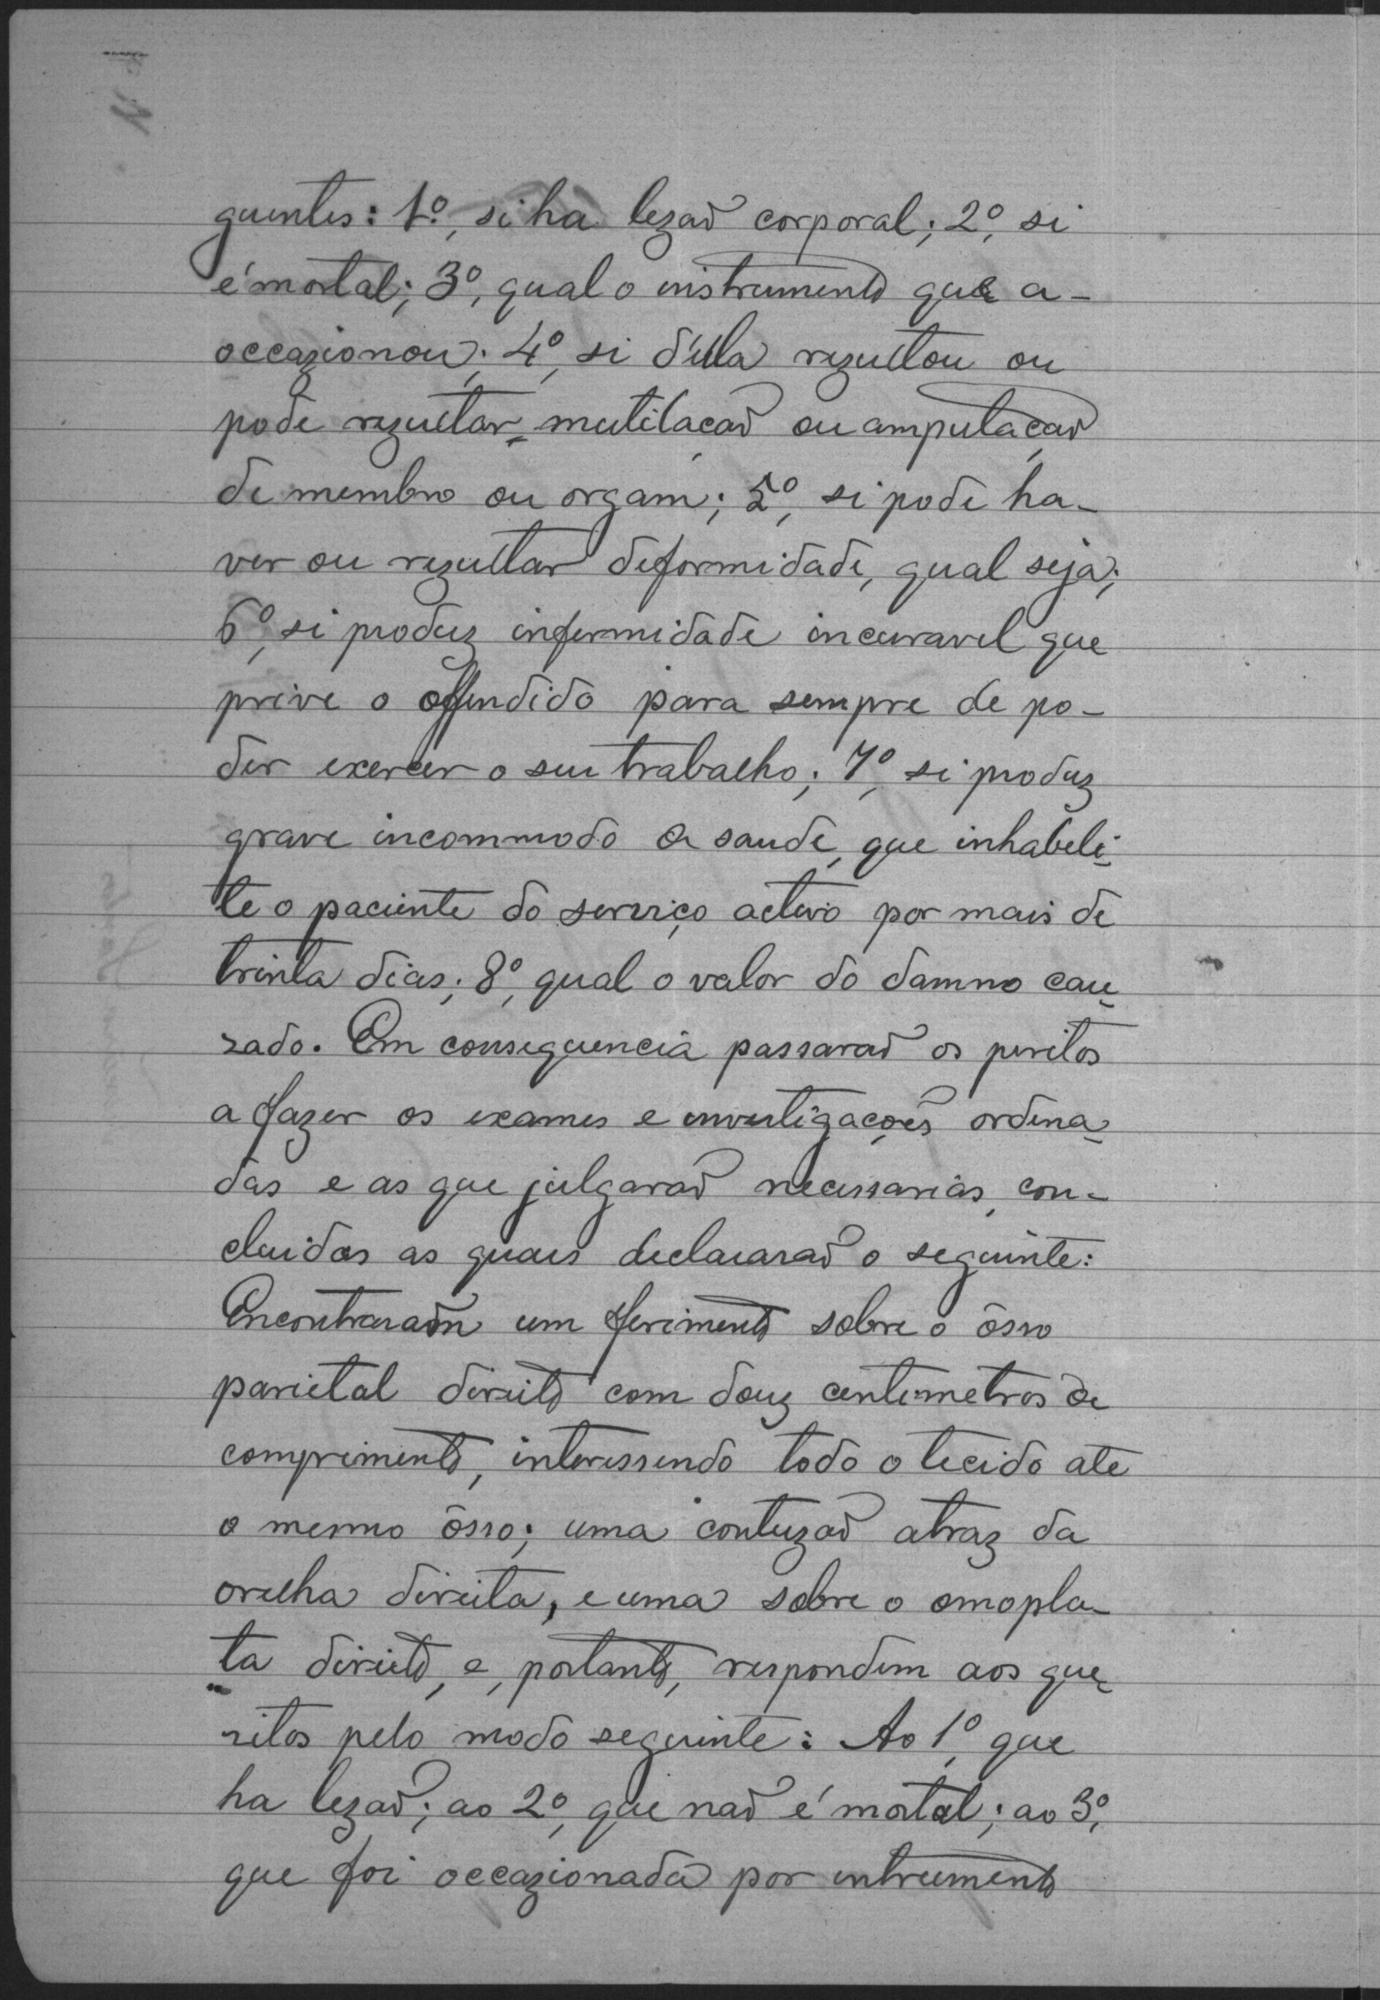 guintes: 1º, si ha lezaõ corporal; 2º, si
é mortal; 3º, qual o instrumento que a-
occazionou; 4º, si d'ella rezultou ou
pode rezultar mutilaçaõ ou amputaçaõ
de membro ou orgam; 5º, si pode ha-
ver ou rezultar deformidade, qual seja;
6º, si produz infermidade incuravel que
prive o offendido para sempre de po-
der exercer o seu trabalho; 7º, si produz
grave incommodo a saude, que inhabeli-
te o paciente do serviço activo por mais de
trinta dias; 8º, qual o valor do damno cau-
zado. Em consequencia passaraõ os peritos
a fazer os exames e investigações ordena-
das e as que julgaraõ necessarias, con-
cluidas as quais declararaõ o seguinte:
Encontraraõm um ferimento sobre o ôsso
parietal direito com douz centimetros de
comprimento, interessendo todo o tecido ate
o mesmo ôsso; uma contuzaõ atraz da
orelha direita, e uma sobre o omopla-
ta direito, e, portanto, respondem aos que-
zitos pelo modo seguinte: Ao 1º que
ha lezaõ; ao 2º, que naõ é mortal; ao 3º,
que foi occazionada por intrumento